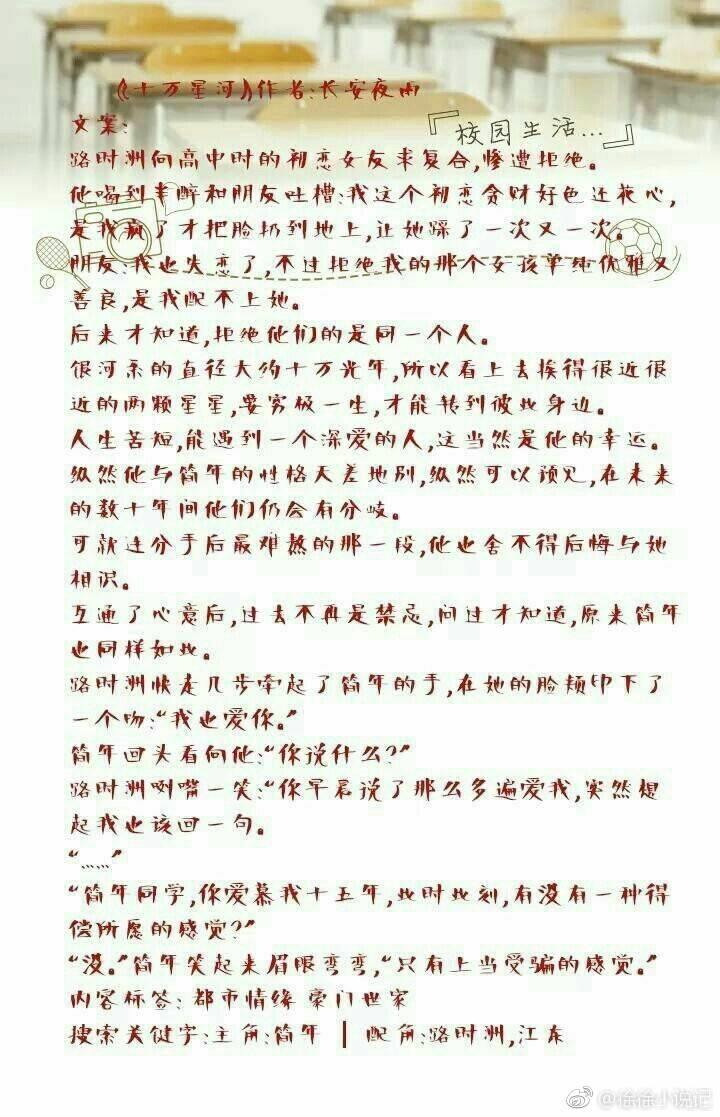 《十万星河》作者:长安夜雨
文案:
『校园生活...』
路时洲向高中时的初恋女友求复合,惨遭拒绝。
他喝到半醉和朋友吐槽:我这个初恋贪财好色还花心,
是我疯了才把脸扔到地上,让她踩了一次又一次。
朋友:我也失恋了,不过拒绝我的那个女孩单纯优雅又
善良,是我配不上她。
后来才知道,拒绝他们的是同一个人。
银河系的直径大约十万光年,所以看上去挨得很近很
近的两颗星星,要穷极一生,才能转到彼此身边。
人生苦短,能遇到一个深爱的人,这当然是他的幸运。
纵然他与简年的性格天差地别,纵然可以预见,在未来
的数十年间他们仍会有分歧。
可就连分手后最难熬的那一段,他也舍不得后悔与她
相识。
互通了心意后,过去不再是禁忌,问过才知道,原来简年
也同样如此。
路时洲快走几步牵起了简年的手,在她的脸颊印下了
一个吻:“我也爱你。”
简年回头看向他:“你说什么?”
路时洲咧嘴一笑:“你早晨说了那么多遍爱我,突然想
起我也该回一句。
“……”
“简年同学,你爱慕我十五年,此时此刻,有没有一种得
偿所愿的感觉?”
“没。”简年笑起来眉眼弯弯,“只有上当受骗的感觉。”
内容标签: 都市情缘 豪门世家
搜索关键字:主角:简年 ┃ 配角:路时洲,江东
@徐徐小说记